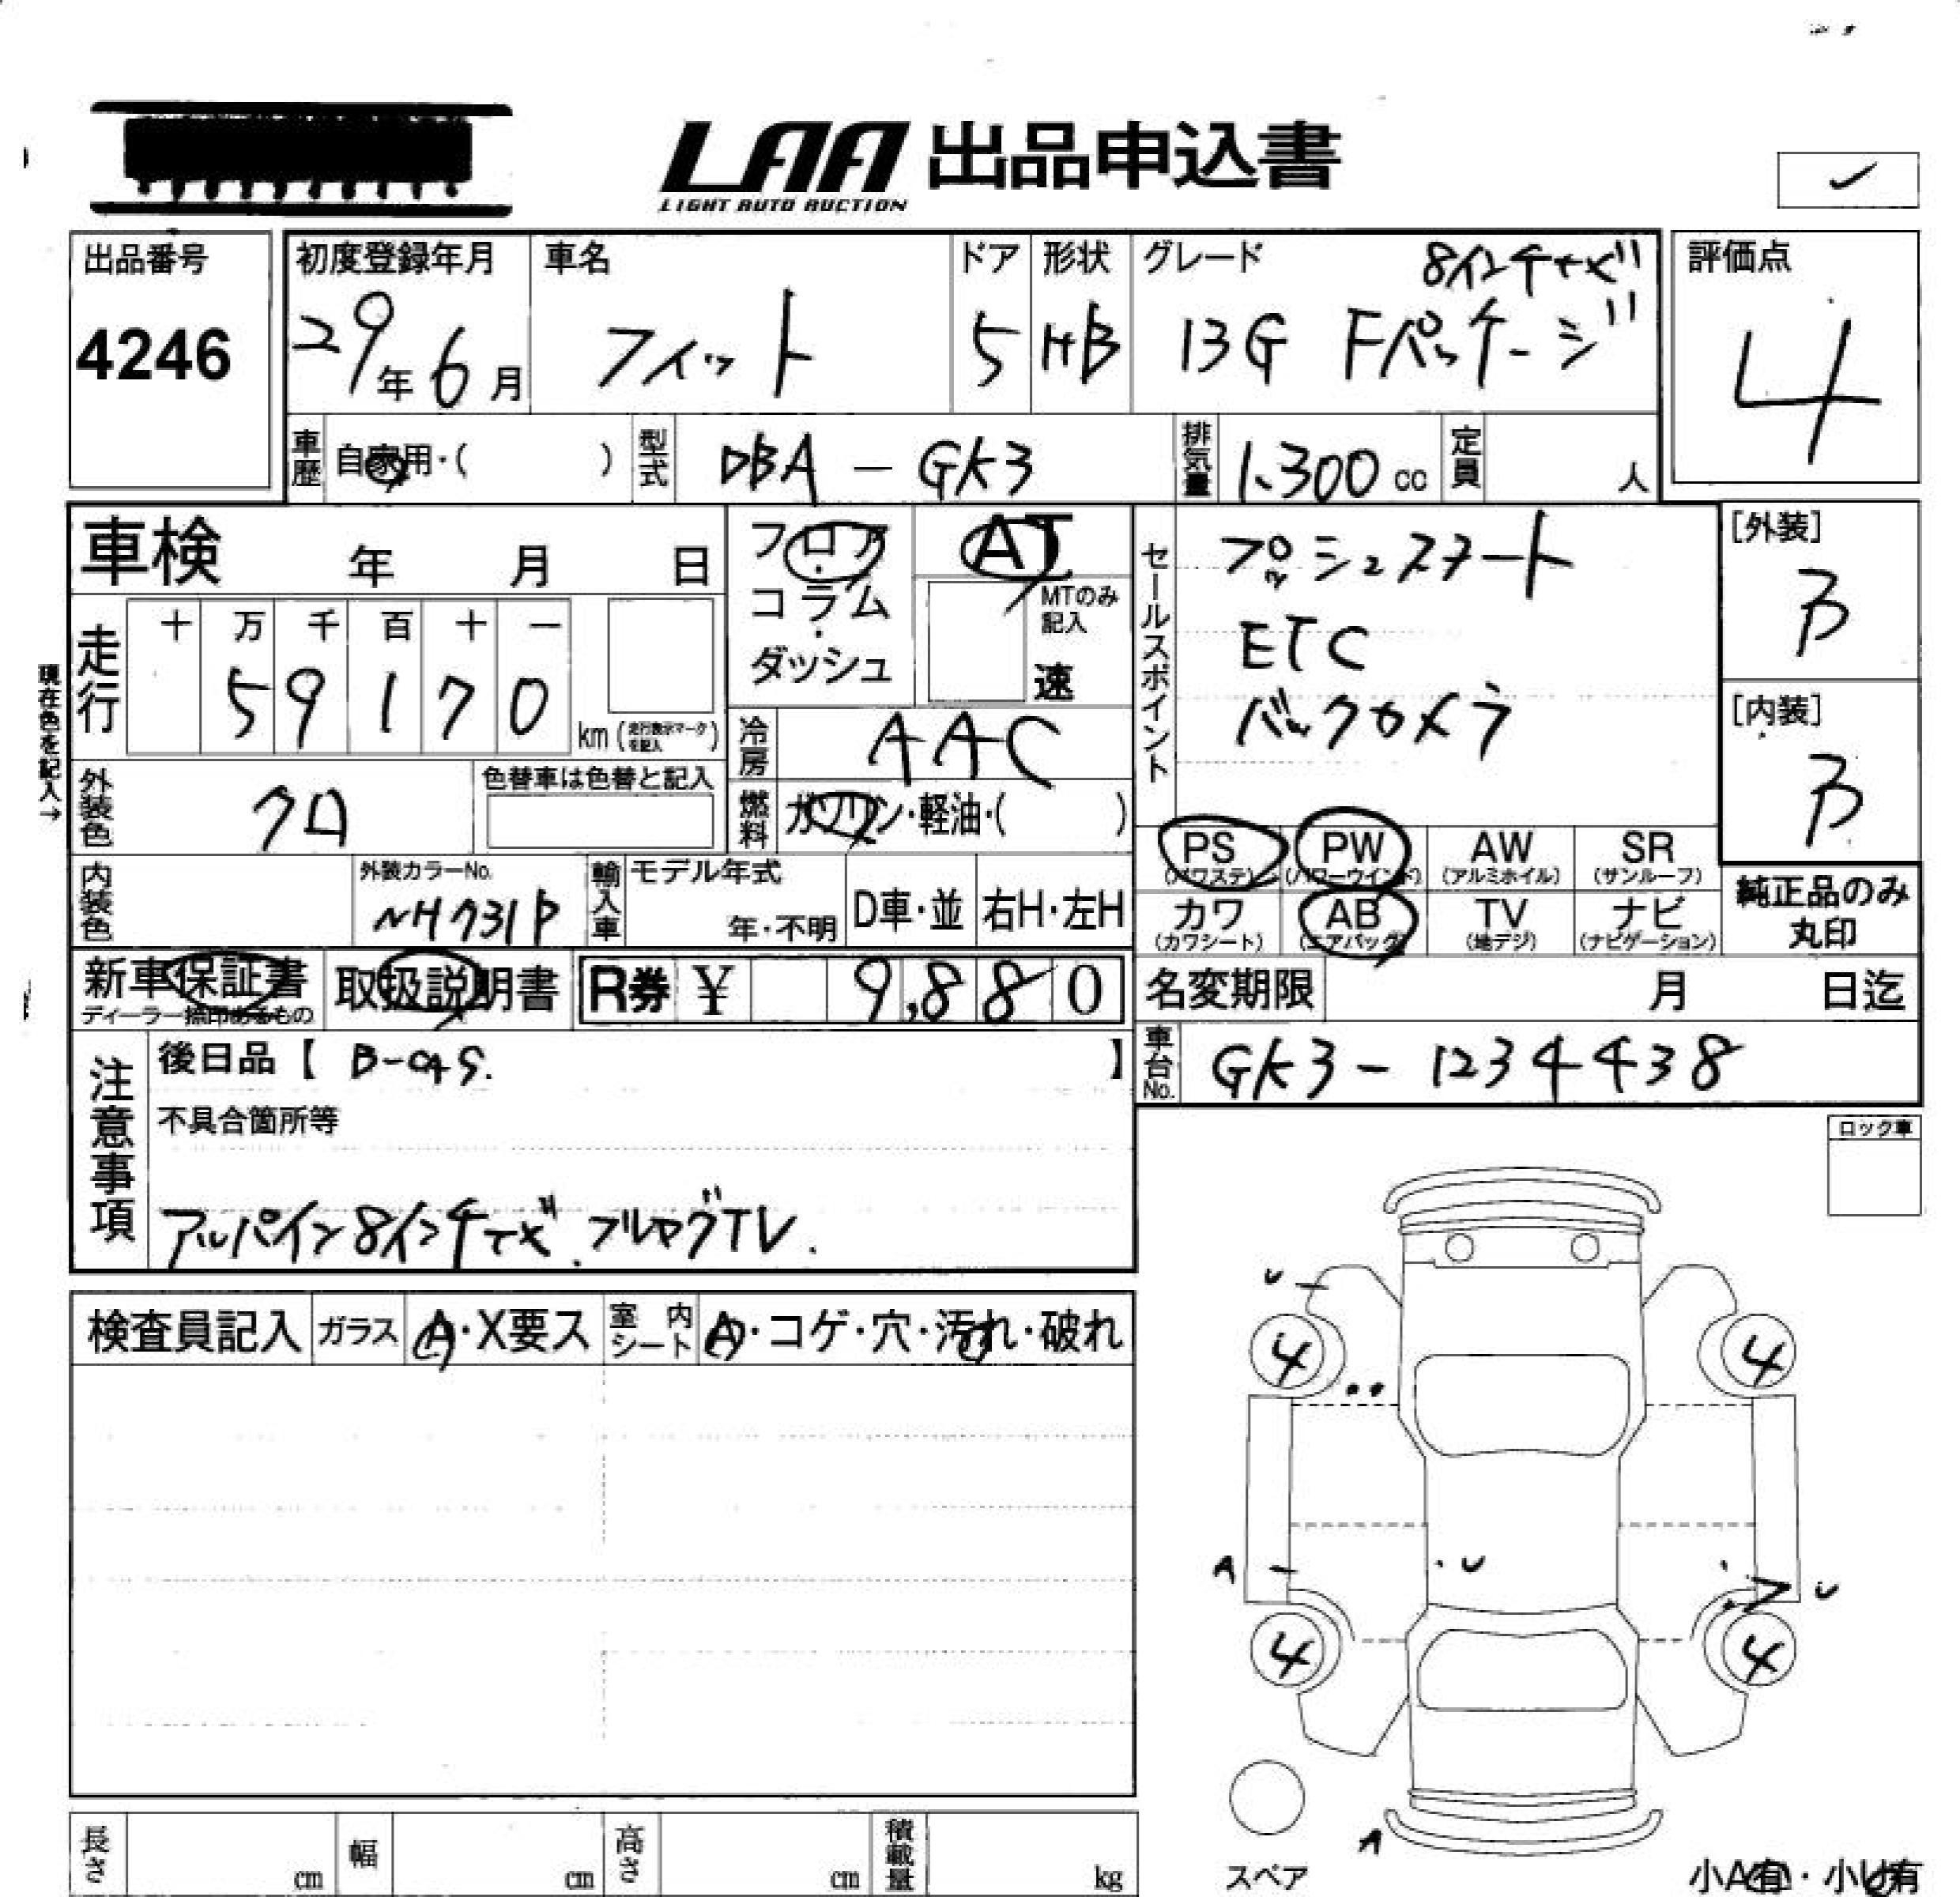 LAA 出品申込書
LIGHT AUTO AUCTION
出品番号
4246
初度登録年月
29年6月
車名
フィット
ドア
5
形状
HB
グレード
8インチナビ
13G Fパッケージ
評価点
4
車歴 自家用・( )
型式 DBA - GK3
排気量 1,300 cc
定員 人
車検 年 月 日
現在色を記入→
走行
十 万 千 百 十 一
5 9 1 7 0
km (走行表示マークを記入)
フロア・コラム・ダッシュ
AT
MTのみ記入
速
冷房 AAC
燃料 ガソリン・軽油・( )
外装色 クロ
色替車は色替と記入
内装色
外装カラーNo.
NH731P
輸入車
モデル年式
年・不明
D車・並
右H・左H
セールスポイント
プッシュスタート
ETC
バックカメラ
[外装]
B
[内装]
B
PS (パワステ)
PW (パワーウインド)
AW (アルミホイル)
SR (サンルーフ)
カワ (カワシート)
AB (エアバッグ)
TV (地デジ)
ナビ (ナビゲーション)
純正品のみ丸印
新車保証書
ディーラー捺印あるもの
取扱説明書
R券 ¥ 9,880
名変期限 月 日迄
車台No. GK3-1234438
注意事項
後日品【 B-CAS. 】
不具合箇所等
アルパイン8インチナビ. フルセグTV.
ロック車
検査員記入
ガラス A・X要ス
室内シート A・コゲ・穴・汚れ・破れ
U
4 4
A
U
U
4 4
A
スペア
小A有・小U有
長さ cm
幅 cm
高さ cm
積載量 kg